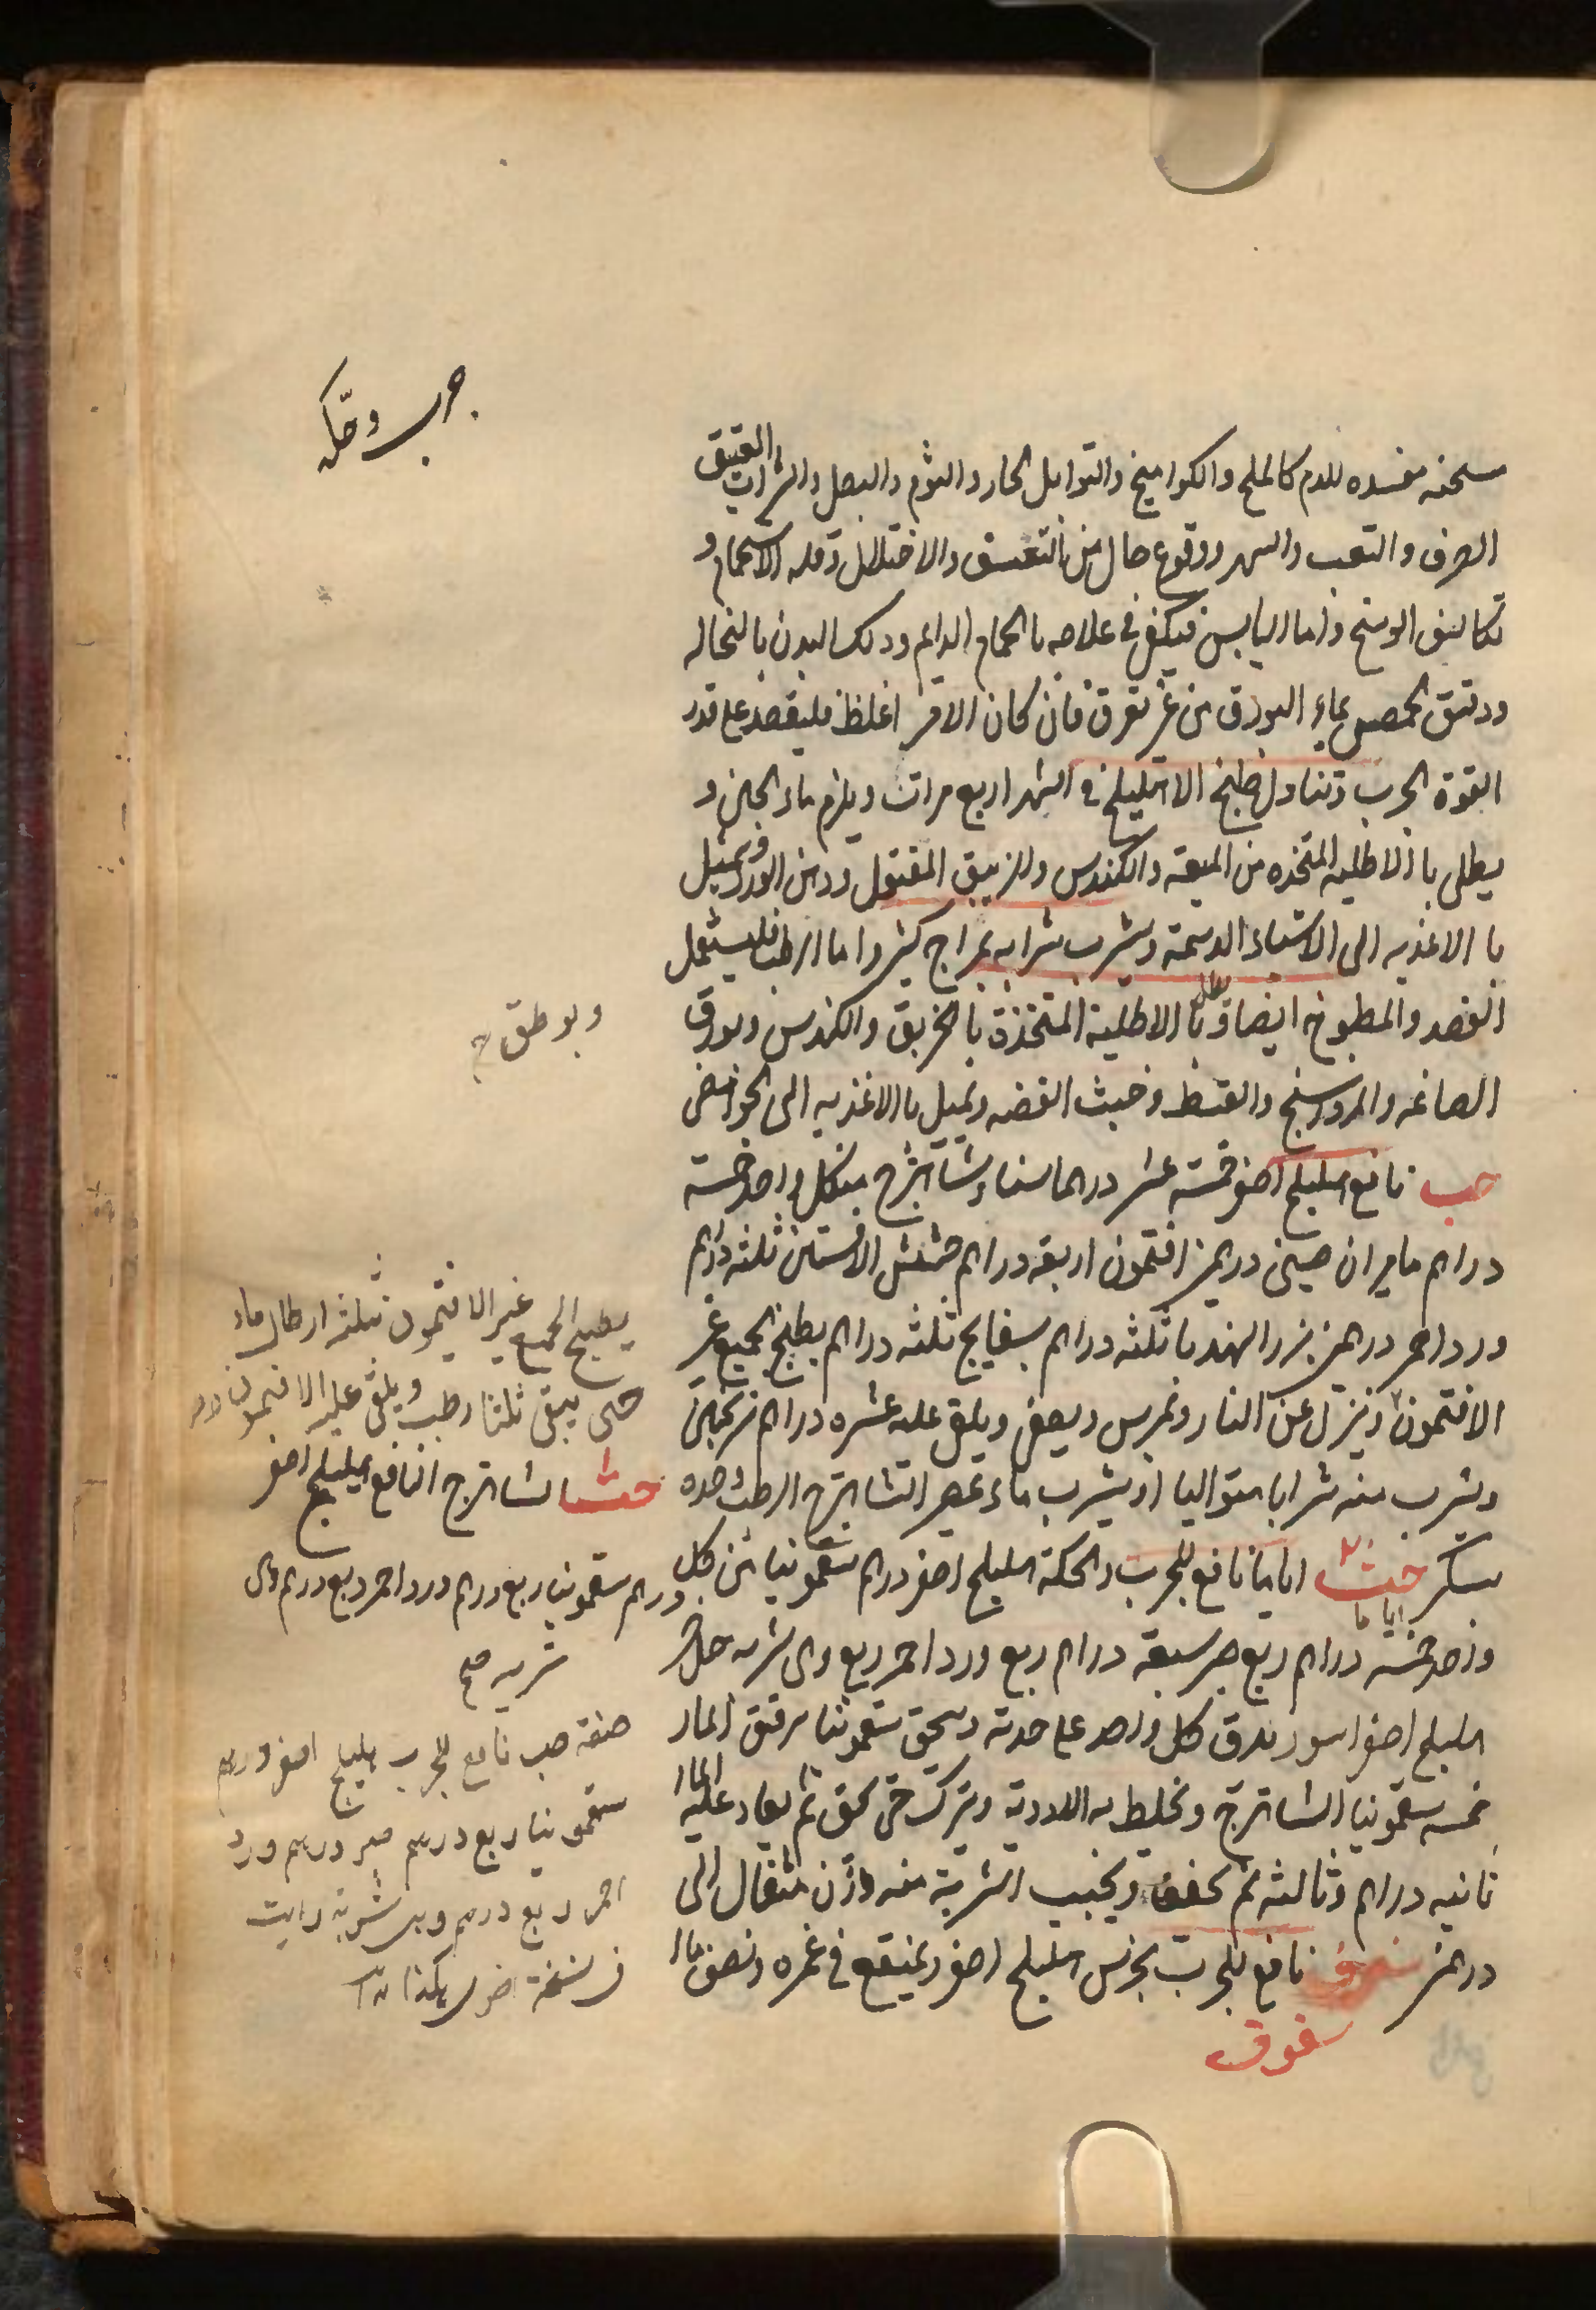 جرب وحكه
مسخنه مفسده للدم كالملح والكواميخ والتوابل الحار والثوم والبصل والشراب العتيق
الصرف والتعب والسهر ووقوع حال من التعسف والاختلال وقله الاستحمام و
تكاثف الوسخ واما اليابس فيكفى فى علاجه بالحمام الدايم ودلك البدن بالنخاله
ودقيق الحمص بماء البورق من غير تعرق فان كان الامر اغلظ فليفصد على قدر
القوة الجرب وتناول طبخ الاهليلج فى الشهر اربع مرات ويلزم ماء الجبن و
يطلى باالاطليه المتخذه من الميعه والكندس والزيبق المقتول ودهن الورد ويميل
با الاغذيه الى الاشياء الدسمة ويشرب شرابه بمزاج كثير واما الرطب فليستعمل
الفصد والمطبوخ ايضا ويطلى با الاطلية المتخذة با الخربق والكندس وبورق
الصاغه والمرداسنج والقسط وخبث الفضه ويميل با الاغذيه الى الحوامض
حب نافع اهليلج اصفر خمسة عشر درهما سناء وشاهترج من كل واحد خمسة
دراهم ماميران صينى درهمين افتيمون اربعة دراهم حشيش الافسنتين ثلثه دراهم
ورد احمر درهمين بزر الهندبا ثلثه دراهم بسفايج ثلثه دراهم يطبخ الجميع غير
الافتيمون وينزل عن النار ويمرس ويصفى ويلقى عليه عشره دراهم ترنجبين
ويشرب منه شرابا متواليا او يشرب ماء عصير الشاهترج الرطب وحده
بسكر اياما نافع للجرب والحكة اهليلج اصفر درهم سقمونيا من كل
اياما
واحد خمسة دراهم ربع صبر سبعة دراهم ربع ورد احمر ربع وهى شربه
اهليلج اصفر اسود يدق كل واحد على حدته ويسحق سقمونيا
خمسه سقمونيا الشاهترج ويخلط به الادوية ويترك حتى يجف ثم يعاد عليه الماء
ثانيه دراهم وثالثه ثم يجفف ويحبب الشربة منه وزن مثقال الى
درهمين نافع للجرب اهليلج اصفر وينقع فى غمره ونصف ماء
سفوف
وبوطق
يطبخ الجميع غير الافتيمون بثلثه ارطال ماء
حتى يبقى ثلثا رطب ويلقى عليه الافتيمون
شاهترج النافع اهليلج اصفر
درهم سقمونيا ربع درهم ورد احمر ربع درهم وهى
شربه صح
صفة حب نافع للجرب هليلج اصفر درهم
سقمونيا ربع درهم صبر درهم ورد
احمر ربع درهم وهى شربة رايت
فى نسخة اخرى هكذا